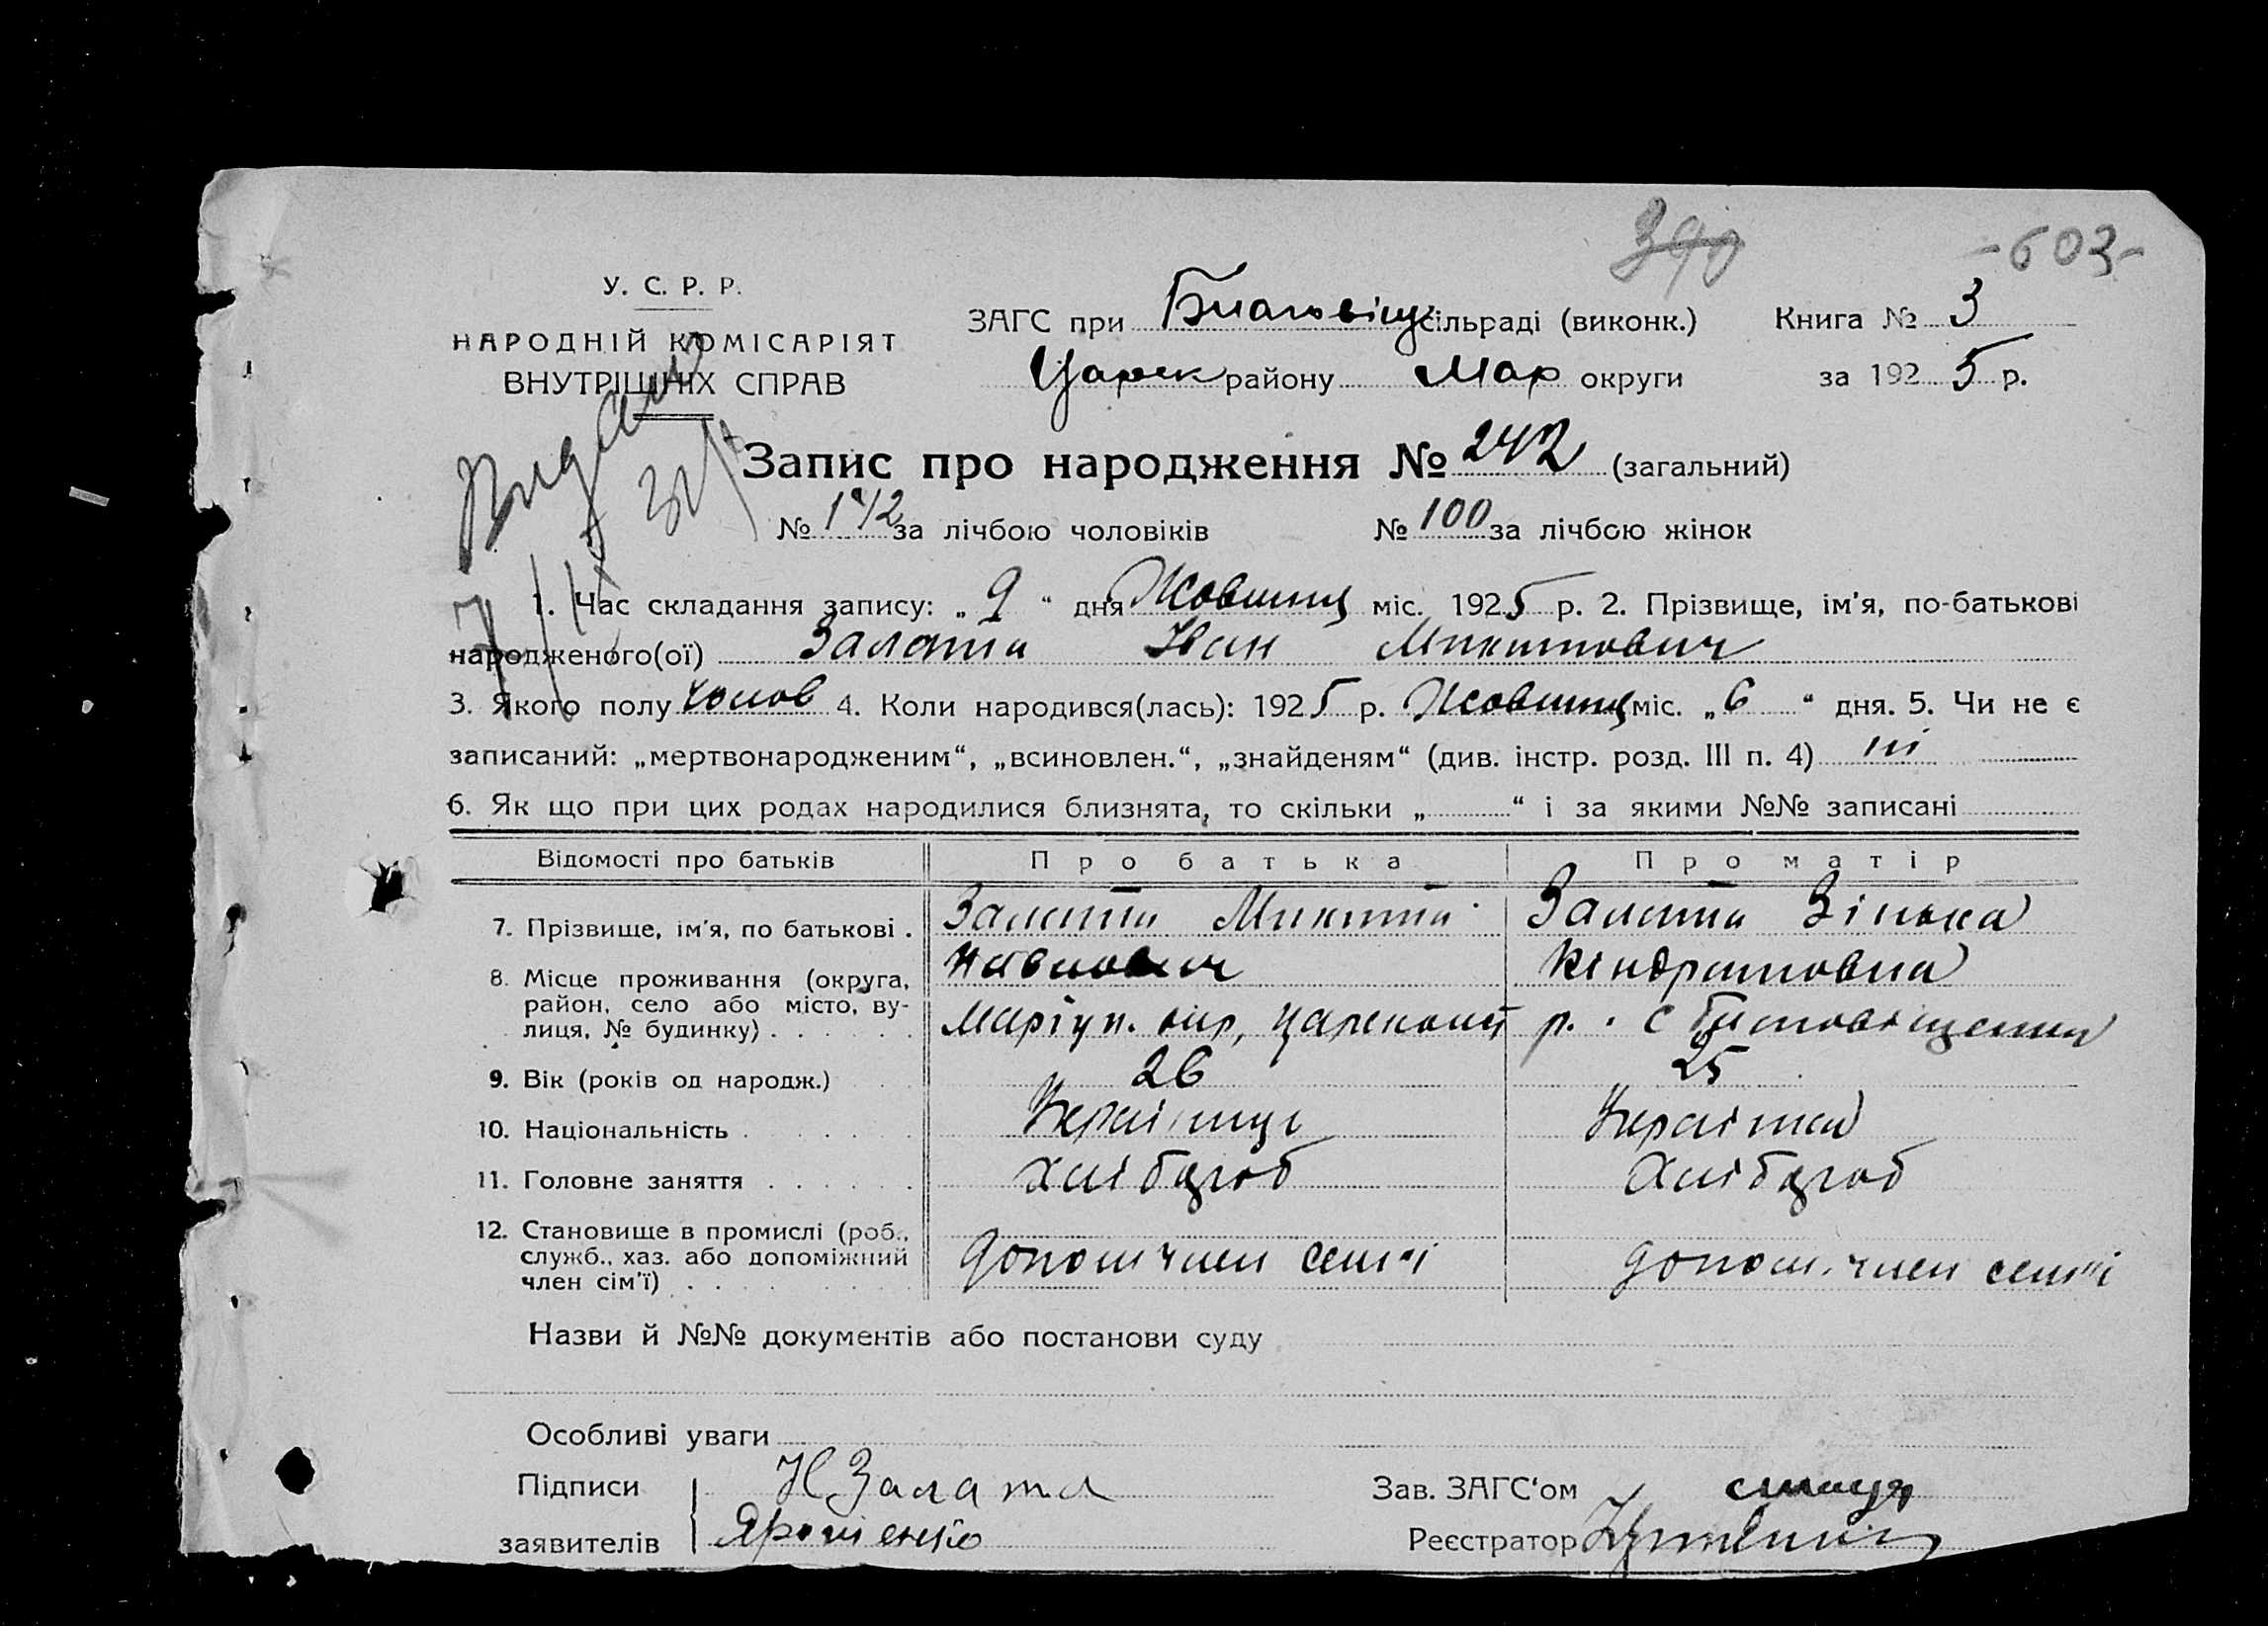 390 -603-
У. С. Р. Р.
НАРОДНІЙ КОМІСАРІЯТ
ВНУТРІШНІХ СПРАВ
ЗАГС при Благовіщ сільраді (виконк.) Книга № 3
Царек району Мар округи за 1925 р.
Запис про народження № 242 (загальний)
№ 142 за лічбою чоловіків № 100 за лічбою жінок
1. Час складання запису: „9“ дня Жовтня міс. 1925 р. 2. Прізвище, ім'я, по-батькові
народженого(ої) Залата Іван Микитович
3. Якого полу чолов 4. Коли народився(лась): 1925 р. Жовтня міс. „6“ дня. 5. Чи не є
записаний: „мертвонародженим“, „всиновлен.“, „знайденям“ (див. інстр. розд. III п. 4) ні
6. Як що при цих родах народилися близнята, то скільки „ “ і за якими №№ записані
Відомості про батьків Про батька Про матір
7. Прізвище, ім'я, по батькові . Залата Микита Залата Зінька
Павлович Кіндратовна
8. Місце проживання (округа,
район, село або місто, ву-
лиця, № будинку) . . . . . Маріуп. окр, Царекон р. с Благовіщенка
9. Вік (років од народж.) 26 25
10. Національність . . . . . Українці Українка
11. Головне заняття . . . . . . Хлібороб Хлібороб
12. Становище в промислі (роб.,
служб., хаз. або допоміжний
член сім'ї) . . . допом член семї допом. член семї
Назви й №№ документів або постанови суду
Особливі уваги
Підписи Н Залата Зав. ЗАГС'ом
заявителів Реєстратор